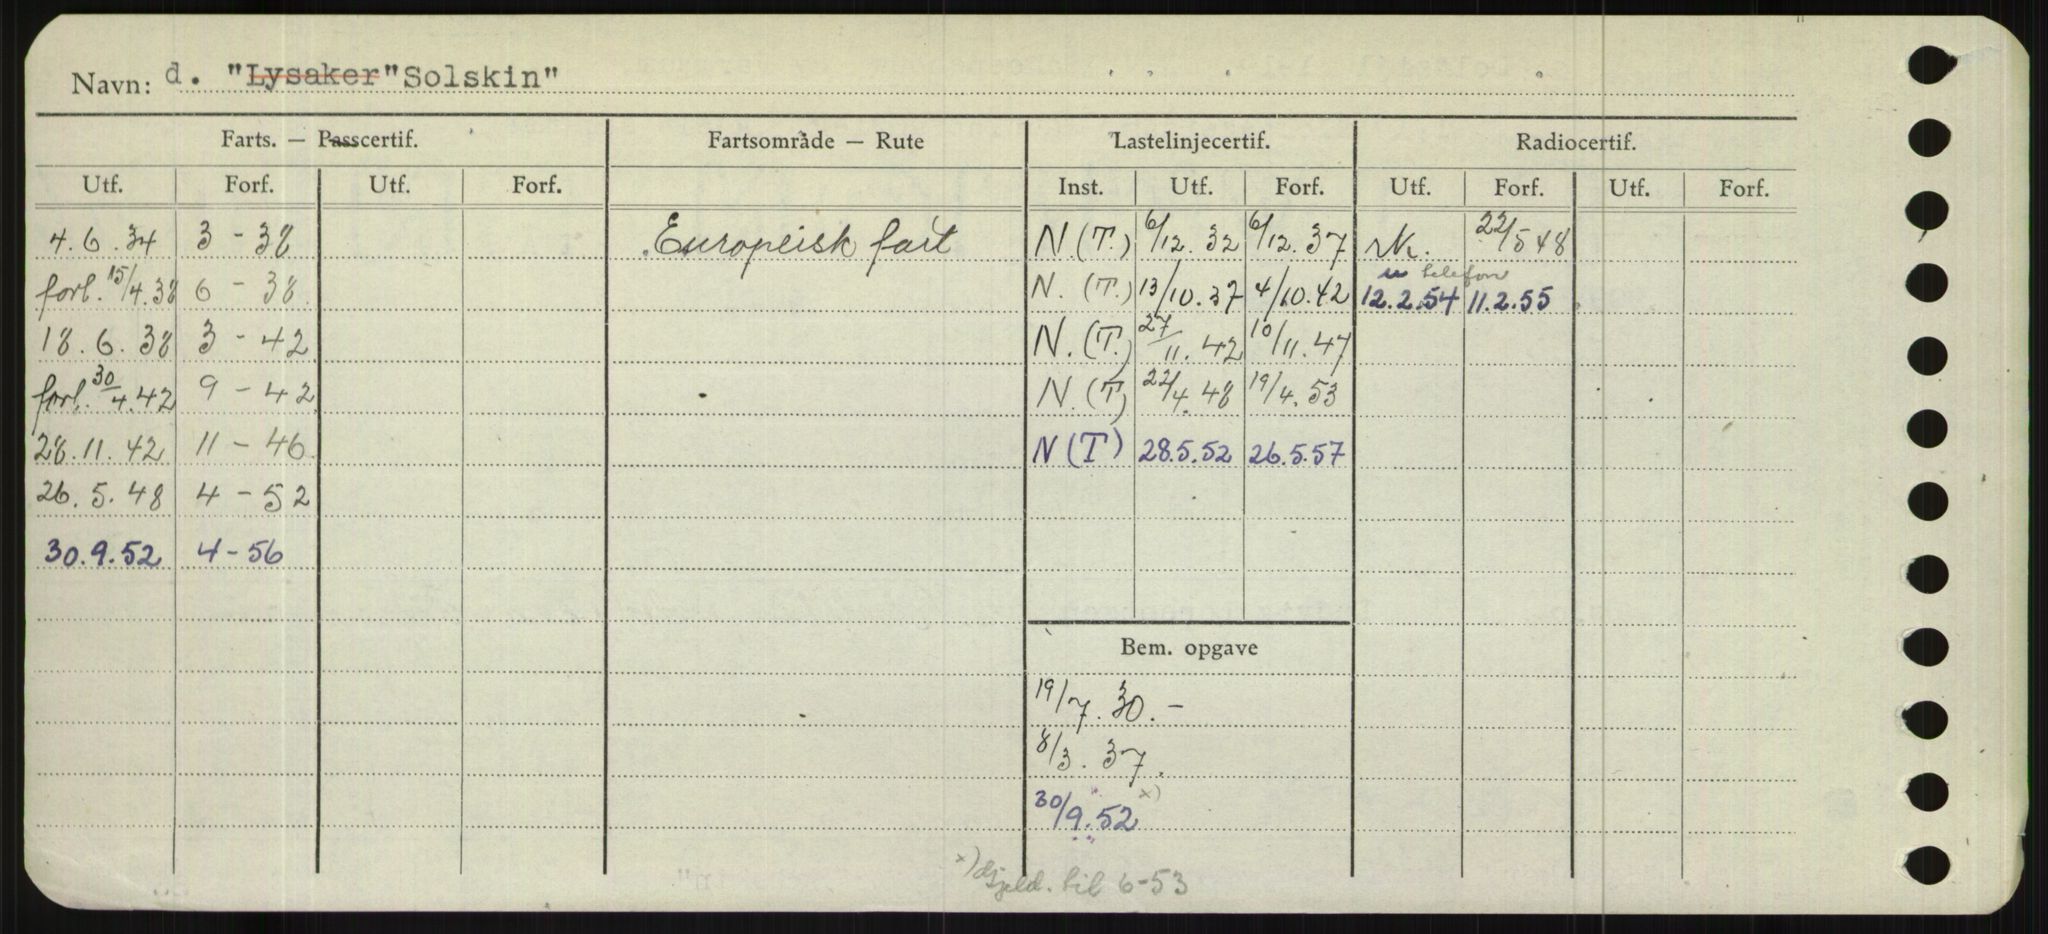 Navn: d. "Lysaker" Solskin"
Farts. — Passcertif. Fartsområde — Rute Lastelinjecertif. Radiocertif.
Utf. Forf. Utf. Forf. Inst. Utf. Forf. Utf. Forf. Utf. Forf.
4.6.34 3-38 Europeisk fart N(T.) 6/12.32 6/12.37 Nk. 22/5 48
forl. 15/4.38 6-38 N.(T.) 13/10.37 4/10.42 telefon 12.2.54 11.2.55
18.6.38 3-42 N.(T.) 27/11.42 10/11.47
forl. 30/4.42 9-42 N.(T) 22/4.48 19/4.53
28.11.42 11-46 N(T) 28.5.52 26.5.57
26.5.48 4-52
30.9.52 4-56
Bem. opgave
19/7.30.-
8/3.37.
30/9.52 x)
x) gjeld. til 6-53